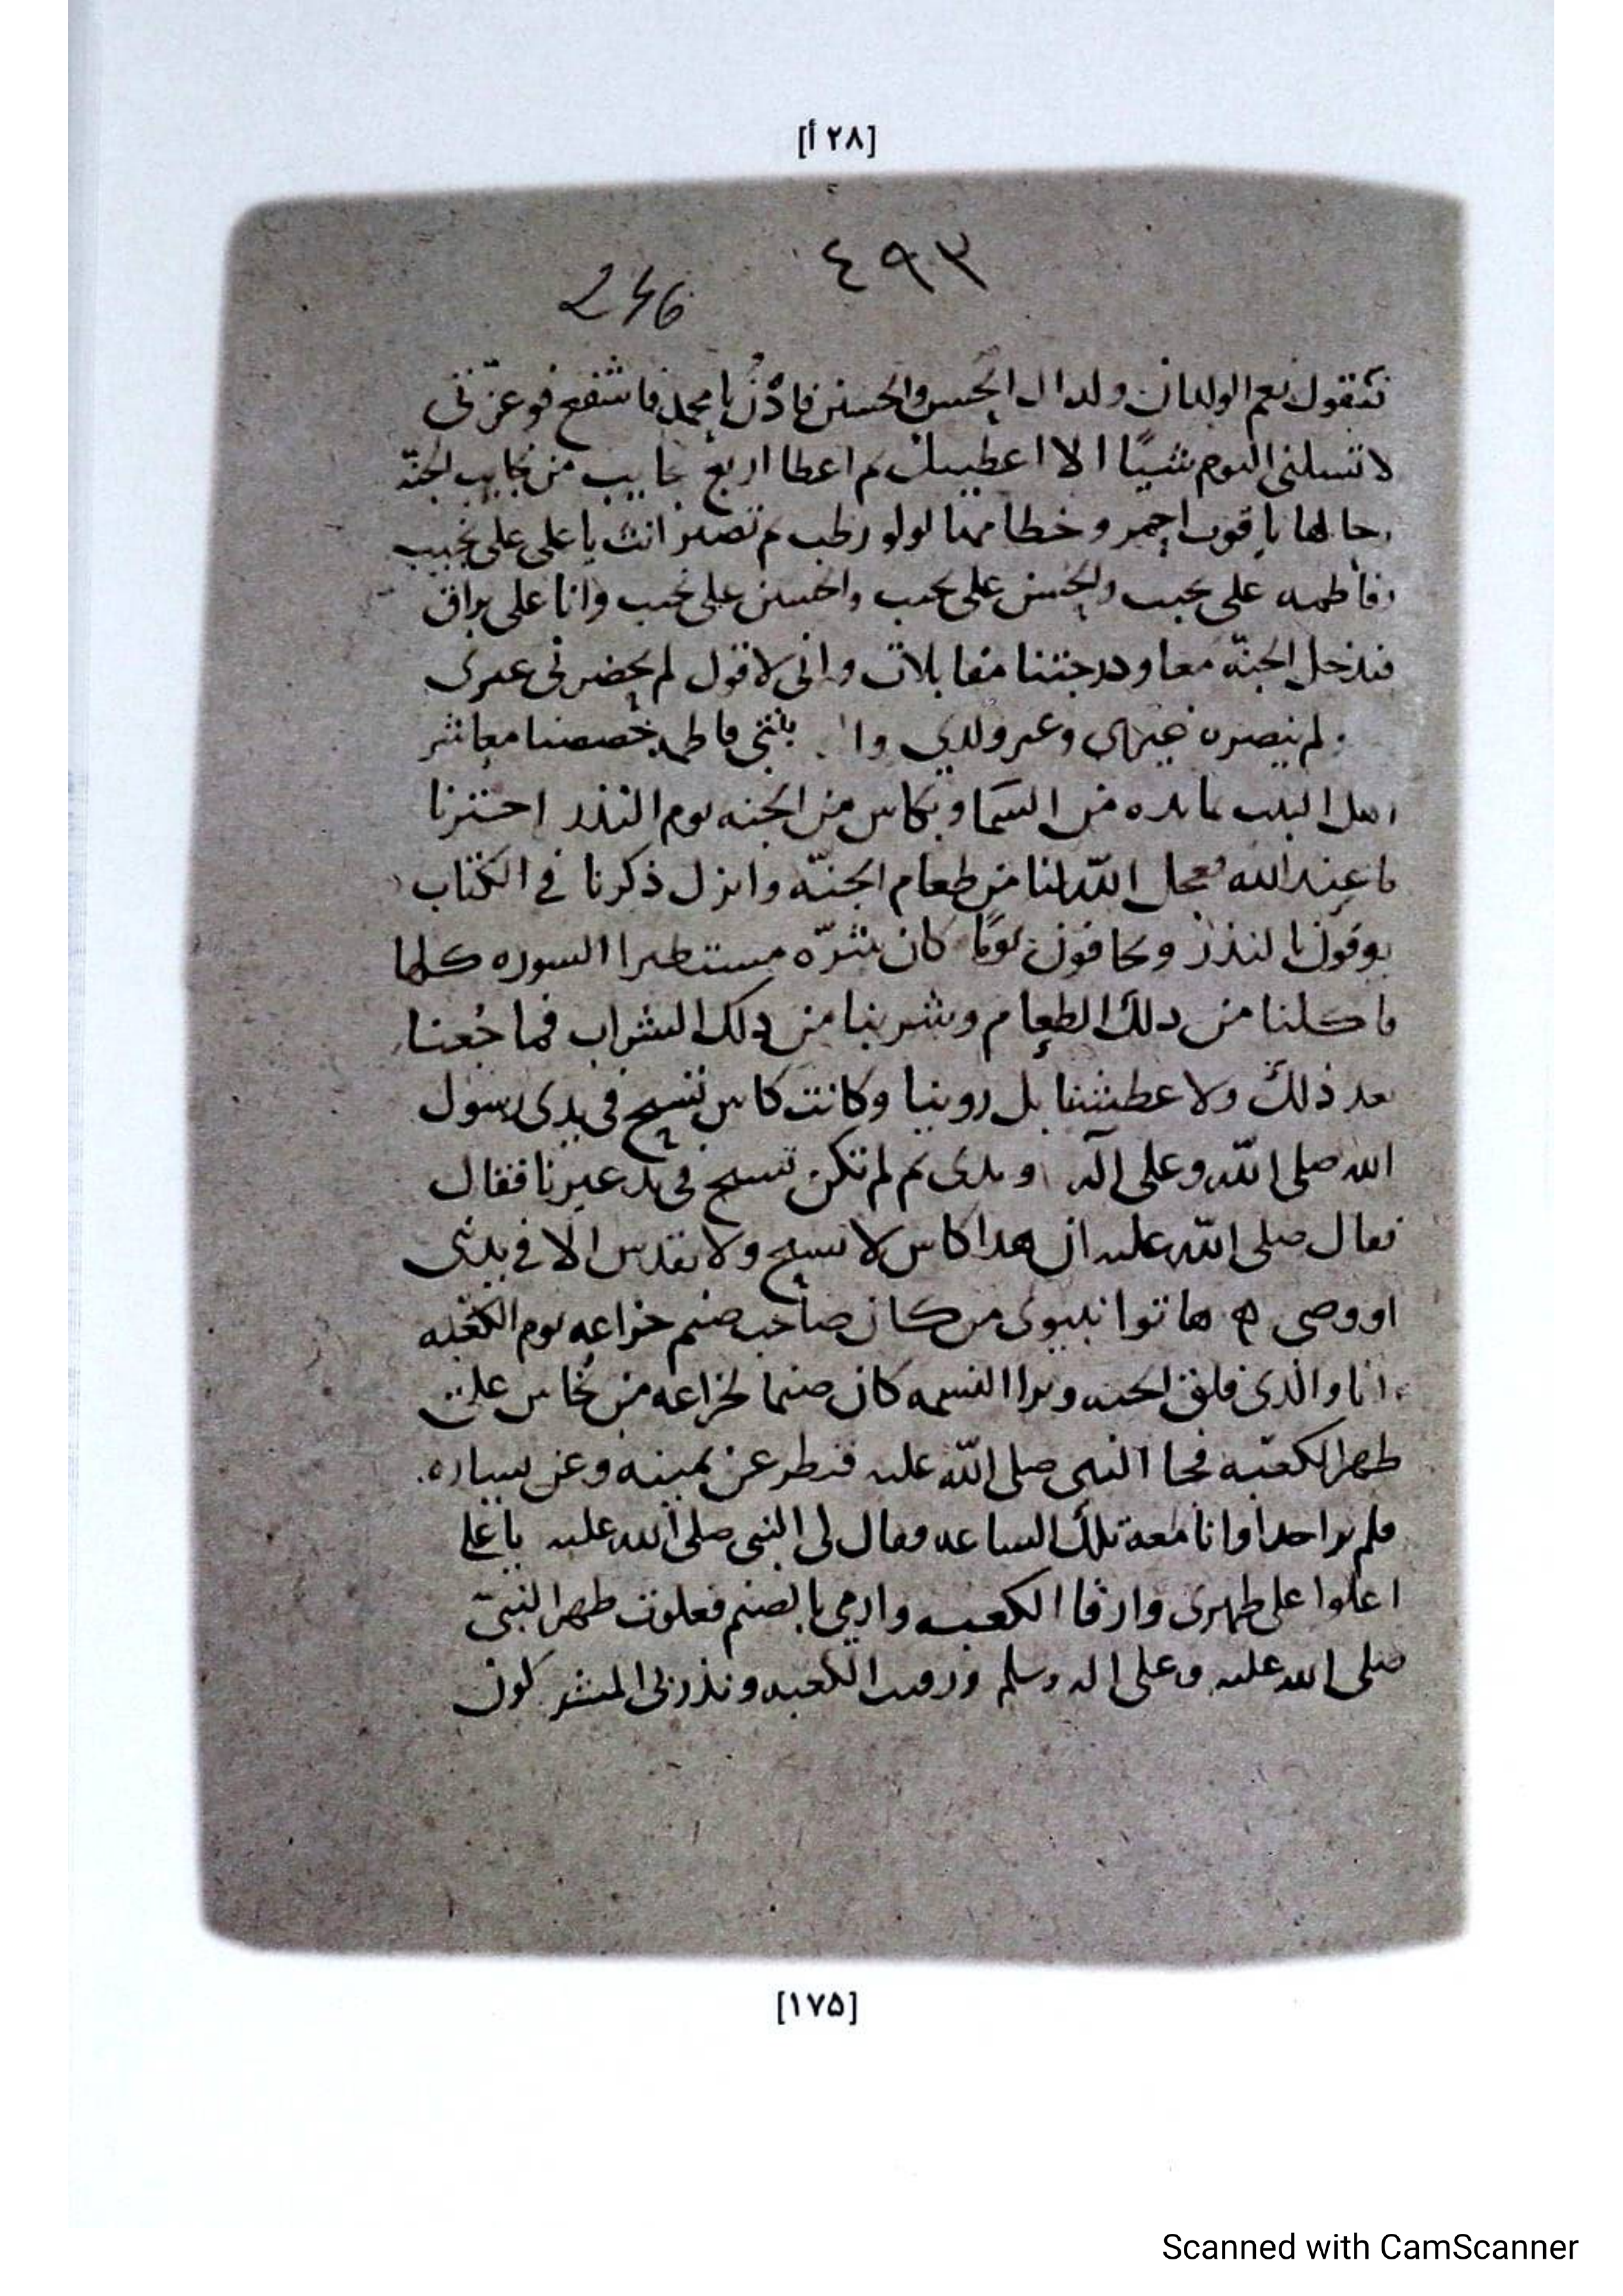 [٢٨ أ]
٤٩٣
246
فتقول نعم الولدان ولدا ال الحسن والحسين فادن يا محمد فاشفع فوعزتى
لا تسلنى اليوم شيئا الا اعطيتك ثم اعطا اربع نجايب من نجايب الجنة
رحالها ياقوت احمر وخطامها لولو رطب ثم تصير انت يا على على نجيب
وفاطمه على نجيب والحسن على نجيب والحسين على نجيب وانا على براق
فندخل الجنة معا ودرجتنا متقابلات وانى لاقول لم يحضرنى غيرى
ولم ينصره غيرى وغير ولدي بنتى فاطمه خصصنا معاشر
اهل البيت بمايده من السما وبكاس من الجنه يوم النذر اخترنا
ما عند الله فعجل الله لنا من طعام الجنة وانزل ذكرنا في الكتاب
يوفون بالنذر ويخافون يوما كان شره مستطيرا السوره كلها
فاكلنا من دلك الطعام وشربنا من دلك الشراب فما جعنا
بعد ذلك ولا عطشنا بل روينا وكانت كاس تسبح فى يدى رسول
الله صلى الله وعلى آله و يدى ثم لم تكن تسبح فى يد غيرنا فقال
فقال صلى الله عليه ان هدا كاس لا تسبح ولا تقدس الا في يد نبى
او وصى ه هاتوا نبيونى من كان صاحب صنم خزاعه يوم الكعبه
انا والذى فلق الحبه وبرا النسمه كان صنما لخزاعه من نحاس على
ظهر الكعبه فجا النبى صلى الله عليه فنظر عن يمينه وعن يساره
فلم ير احدا وانا معه تلك الساعه فقال لى النبى صلى الله عليه يا على
اعلوا على ظهرى وارقا الكعبه وارمى بالصنم فعلوت ظهر النبى
صلى الله عليه وعلى اله وسلم ورقيت الكعبه ونذر بى المشركون
[١٧٥]
Scanned with CamScanner